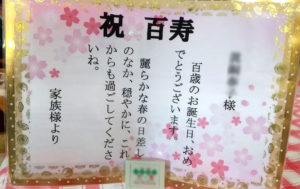 祝 百寿
様
百歳のお誕生日、おめ
でとうございます。
麗らかな春の日差し
のなか、穏やかに、これ
からも過ごしてくださ
いね。
家族様より